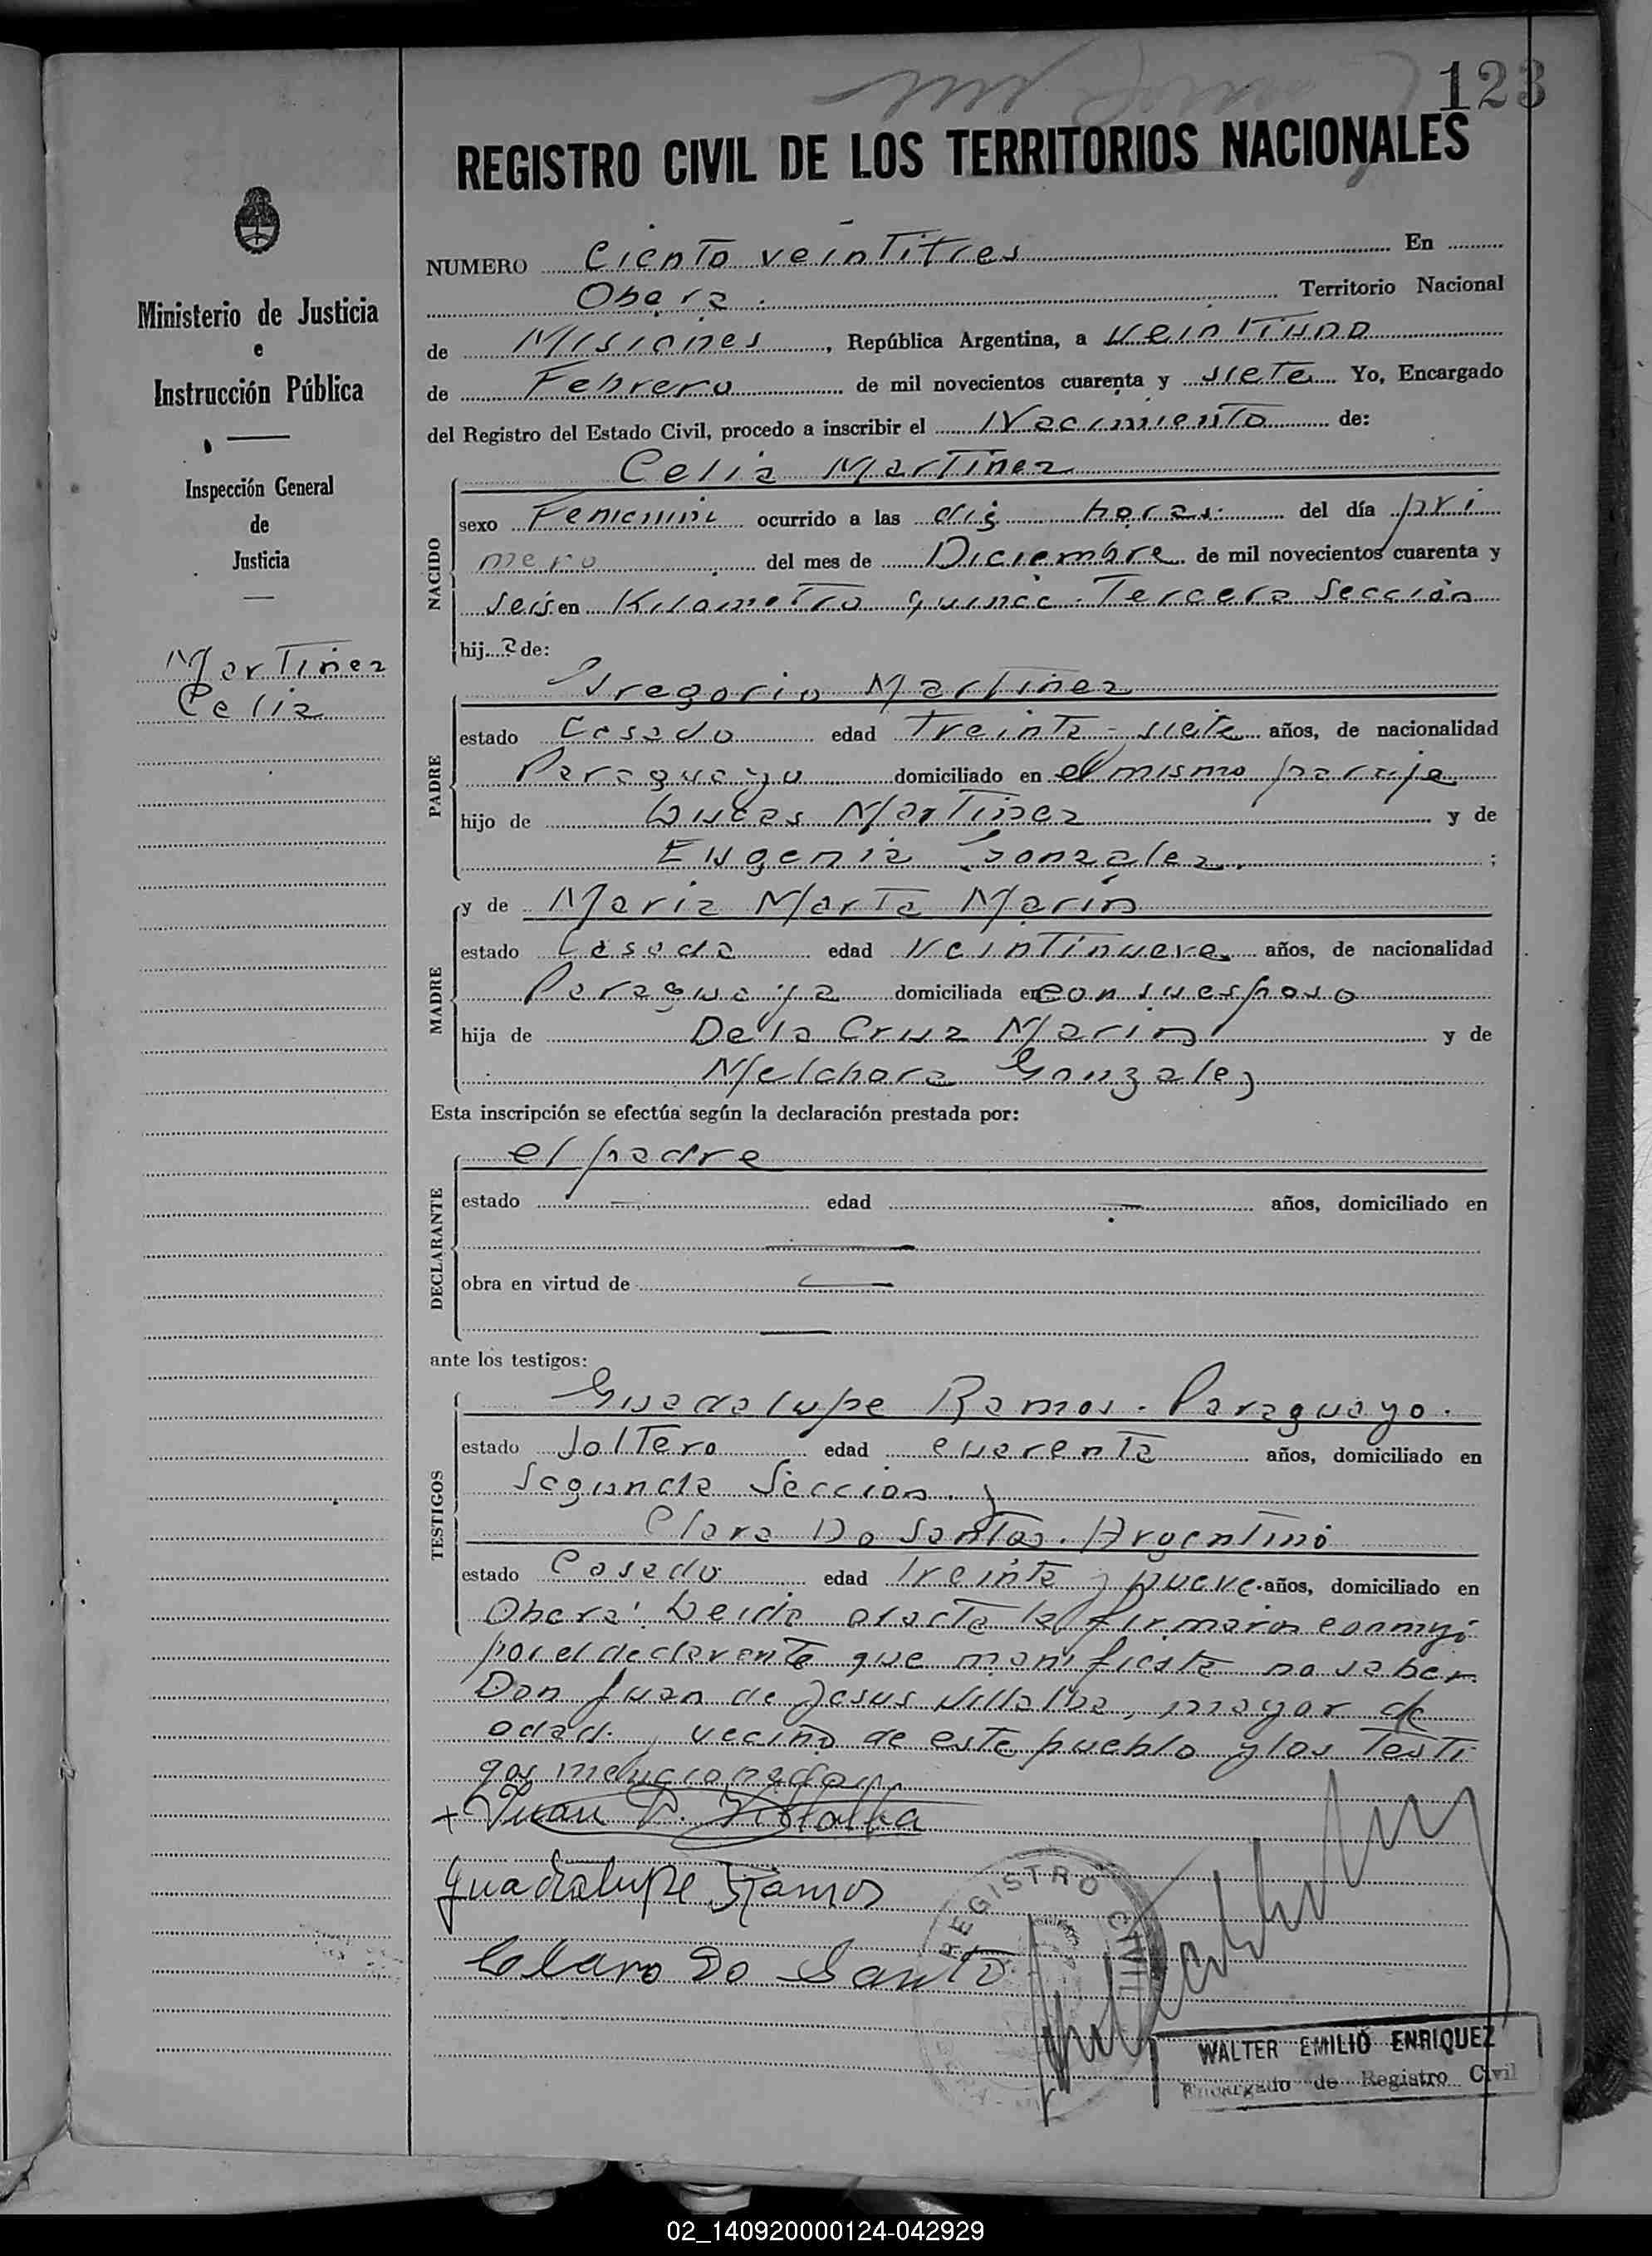 123
REGISTRO CIVIL DE LOS TERRITORIOS NACIONALES
Ministerio de Justicia
e
Instrucción Pública
Inspección General
de
Justicia
Martinez
Celia
NUMERO Ciento veintitres En
Obera. Territorio Nacional
de Misiones, República Argentina, a veintiuno
de Febrero de mil novecientos cuarenta y siete Yo, Encargado
del Registro del Estado Civil, procedo a inscribir el Nacimiento de:
Celia Martinez
NACIDO
sexo Femenini ocurrido a las horas del día pri
mero del mes de Diciembre de mil novecientos cuarenta y
seis en Kilometro quince. Tercera Sección
hija de:
Gregorio Martinez
PADRE
estado Casado edad treinta - siete años, de nacionalidad
Paraguayo domiciliado en el mismo paraje
hijo de Lucas Martinez y de
Eugenia Gonzalez. ;
y de Maria Marta Marin
MADRE
estado Casada edad veintinueve años, de nacionalidad
Paraguaya domiciliada en con su esposo
hija de De la Cruz Marin y de
Melchora Gonzalez
Esta inscripción se efectúa según la declaración prestada por:
el padre
DECLARANTE
estado — edad — años, domiciliado en
—
obra en virtud de —
—
ante los testigos:
Guadalupe Ramos. Paraguayo.
TESTIGOS
estado Soltero edad cuarenta años, domiciliado en
Segunda Seccion. y
Claro Do Santos. Argentino
estado Casado edad treinta y nueve años, domiciliado en
Obera. Leida el acta la firmaron conmigo
por el declarante que manifiesta no saber.
Don Juan de Jesus Villalba, mayor de
edad. y vecino de este pueblo y los testi
gos mencionados
+ Juan D. Villalba
Guadalupe Ramos
Claro Do Santo
REGISTRO CIVIL
WALTER EMILIO ENRIQUEZ
Encargado de Registro Civil
02_140920000124-042929